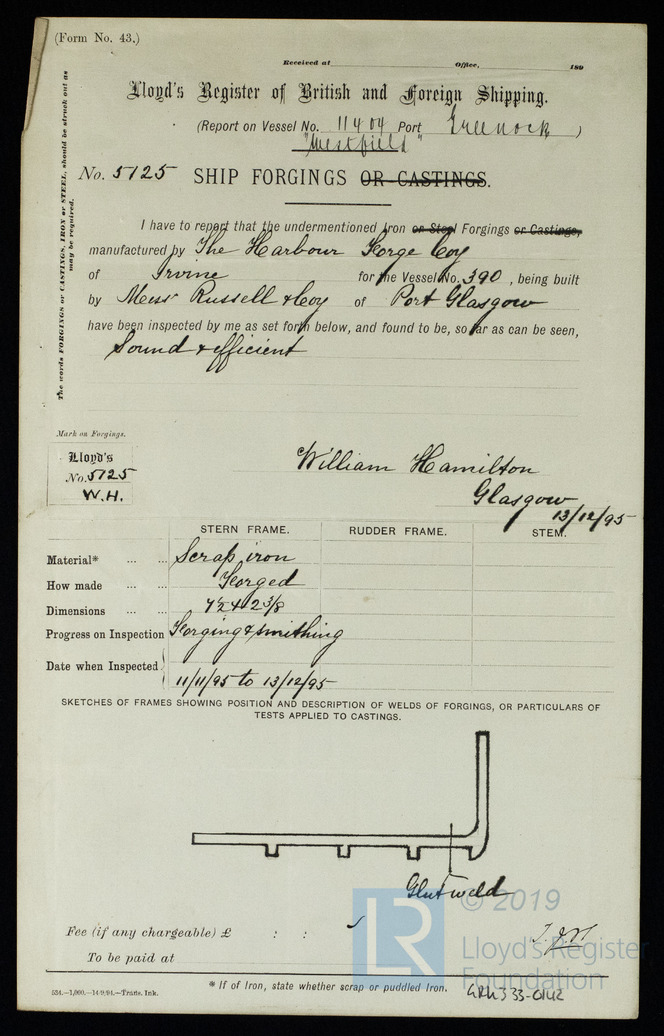 (Form No. 43.)
Received at Office, 189
Lloyd's Register of British and Foreign Shipping.
(Report on Vessel No. 11404 Port Greenock )
"Westfield"
No. 5125 SHIP FORGINGS OR CASTINGS.
The words FORGINGS or CASTINGS, IRON or STEEL, should be struck out as
may be required.
I have to report that the undermentioned Iron or Steel Forgings or Castings,
manufactured by The Harbour Forge Coy
of Irvine for the Vessel No. 390 , being built
by Messrs Russell & Coy of Port Glasgow
have been inspected by me as set forth below, and found to be, so far as can be seen,
Sound & efficient
Mark on Forgings.
Lloyd's
No. 5125
W.H.
William Hamilton
Glasgow
13/12/95
STERN FRAME. RUDDER FRAME. STEM.
Material* ... ... Scrap iron
How made ... ... Forged
Dimensions ... ... 7½ x 2 3/8
Progress on Inspection Forging & smithing
Date when Inspected 11/11/95 to 13/12/95
SKETCHES OF FRAMES SHOWING POSITION AND DESCRIPTION OF WELDS OF FORGINGS, OR PARTICULARS OF
TESTS APPLIED TO CASTINGS.
Glut weld
© 2019
LR
Lloyd's Register
Foundation
Fee (if any chargeable) £ : :
To be paid at
534.—1,000.—14/9/94.—Trans. Ink.
* If of Iron, state whether scrap or puddled Iron.
GRK333-0142